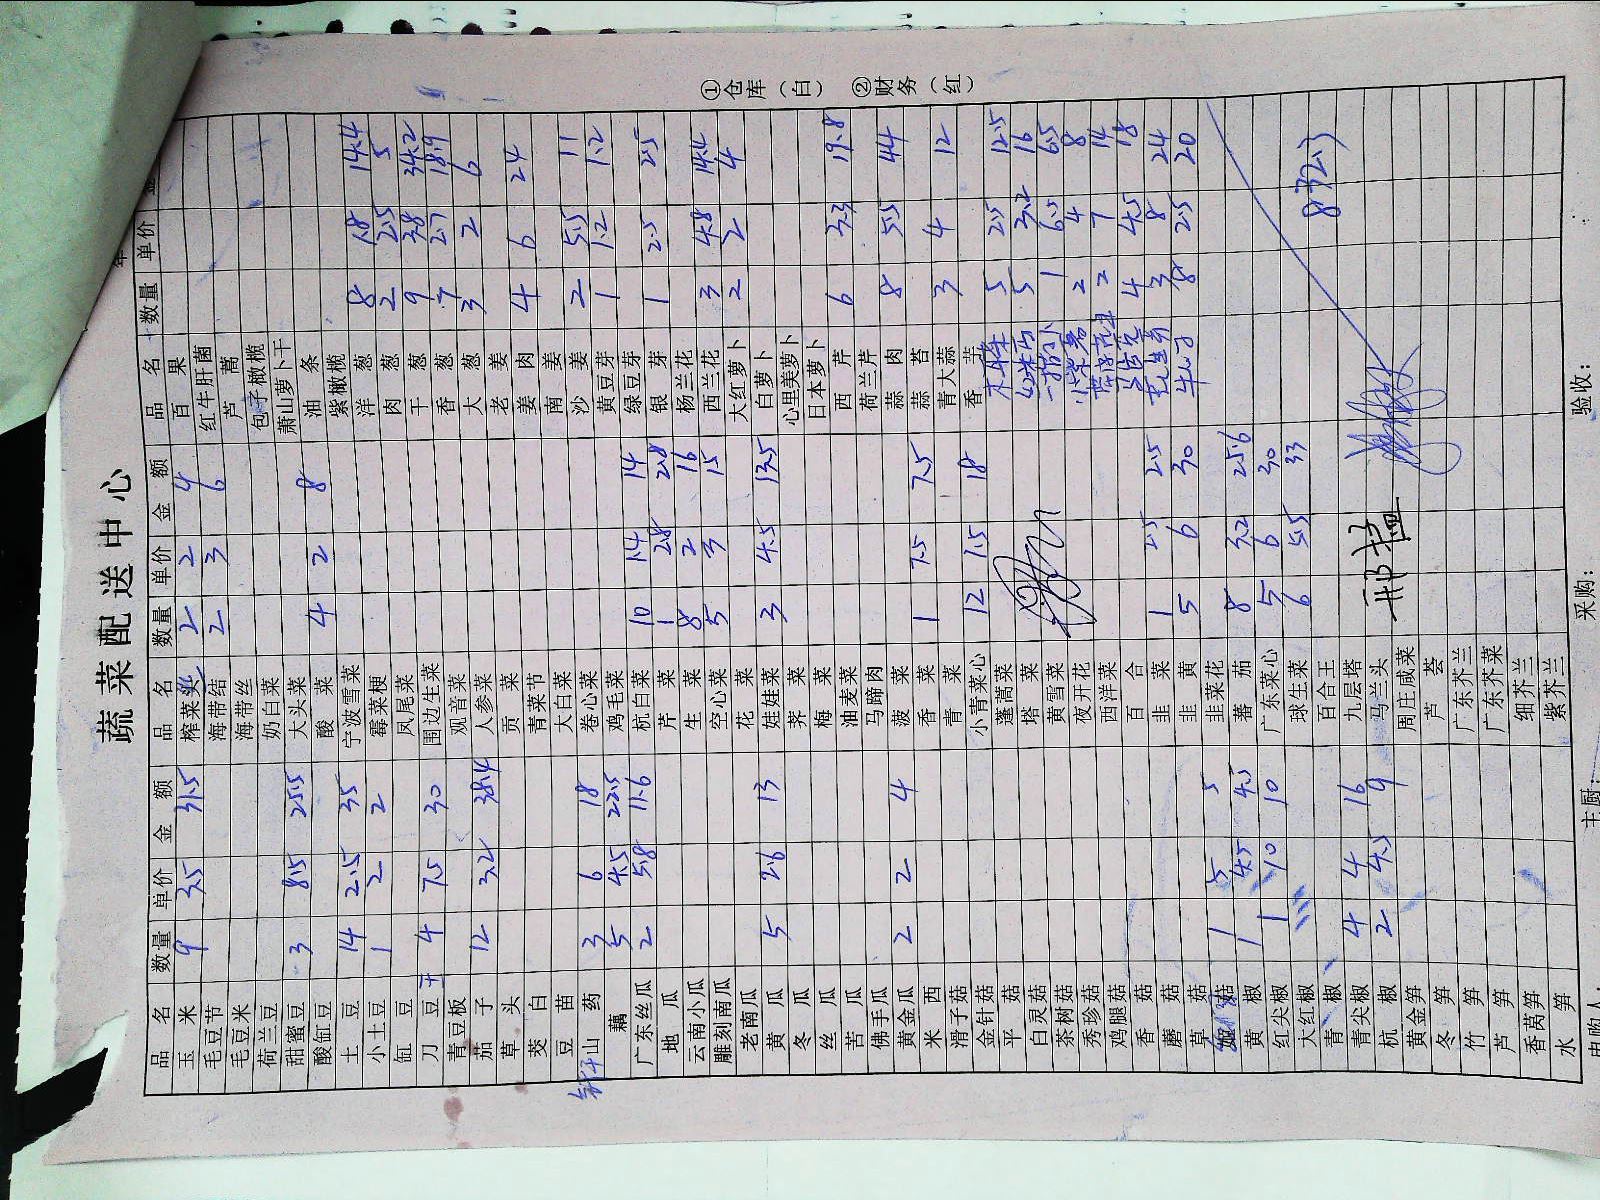 蔬菜配送中心
年
品名 数量 单价 金额 品名 数量 单价 金额 品名 数量 单价 金
玉米 9 3.5 31.5 榨菜头 2 2 4 百果
毛豆节 海带结 2 3 6 红牛肝菌
毛豆米 海带丝 芦蒿
荷兰豆 奶白菜 包子橄榄
甜蜜豆 3 8.5 25.5 大头菜 萧山萝卜干
酸缸豆 酸菜 4 2 8 油条
土豆 14 2.5 35 宁波雪菜 紫橄榄
小土豆 1 2 2 霉菜梗 洋葱 8 1.8 14.4
缸豆 凤尾菜 肉葱 2 2.5 5
刀豆 4 7.5 30 围边生菜 干葱 9 3.8 34.2
青豆板 观音菜 香葱 7 2.7 18.9
茄子 12 3.2 38.4 人参菜 大葱 3 2 6
草头 贡菜 老姜
茭白 青菜节 姜肉 4 6 24
豆苗 大白菜 南姜
山药 3 6 18 卷心菜 沙姜 2 5.5 11
藕 5 4.5 22.5 鸡毛菜 黄豆芽 1 1.2 1.2
广东丝瓜 2 5.8 11.6 杭白菜 10 1.4 14 绿豆芽
地瓜 芹菜 1 2.8 2.8 银芽 1 2.5 2.5
云南小瓜 生菜 8 2 16 杨兰花
雕刻南瓜 空心菜 5 3 15 西兰花 3 4.8 14.4
老南瓜 花菜 大红萝卜 2 2 4
黄瓜 5 2.6 13 娃娃菜 3 4.5 13.5 白萝卜
冬瓜 荠菜 心里美萝卜
丝瓜 梅菜 日本萝卜
苦瓜 油麦菜 西芹 6 3.3 19.8
佛手瓜 马蹄肉 荷兰芹
黄金瓜 2 2 4 菠菜 蒜肉 8 5.5 44
米西 香菜 1 7.5 7.5 蒜苔
滑子菇 青菜 青大蒜 3 4 12
金针菇 小青菜心 12 1.5 18 香芋
平菇 蓬蒿菜 5 2.5 12.5
白灵菇 塔菜 5 3.2 16
茶树菇 黄雪菜 1 6.5 6.5
秀珍菇 夜开花 2 4 8
鸡腿菇 西洋菜 2 7 14
香菇 百合 4 4.5 18
磨菇 韭菜 1 2.5 2.5 3 8 24
草菇 韭黄 5 6 30 8 2.5 20
菇 1 5 5 韭菜花
黄椒 1 4.5 4.5 蕃茄 8 3.2 25.6
红尖椒 1 10 10 广东菜心 5 6 30
大红椒 球生菜 6 5.5 33
青椒 百合王
青尖椒 4 4 16 九层塔
杭椒 2 4.5 9 马兰头
黄金笋 周庄咸菜
冬笋 芦荟
竹笋 广东芥兰
芦笋 广东芥菜
香莴笋 细芥兰
水笋 紫芥兰
主厨: 采购: 验收:
①仓库(白) ②财务(红)